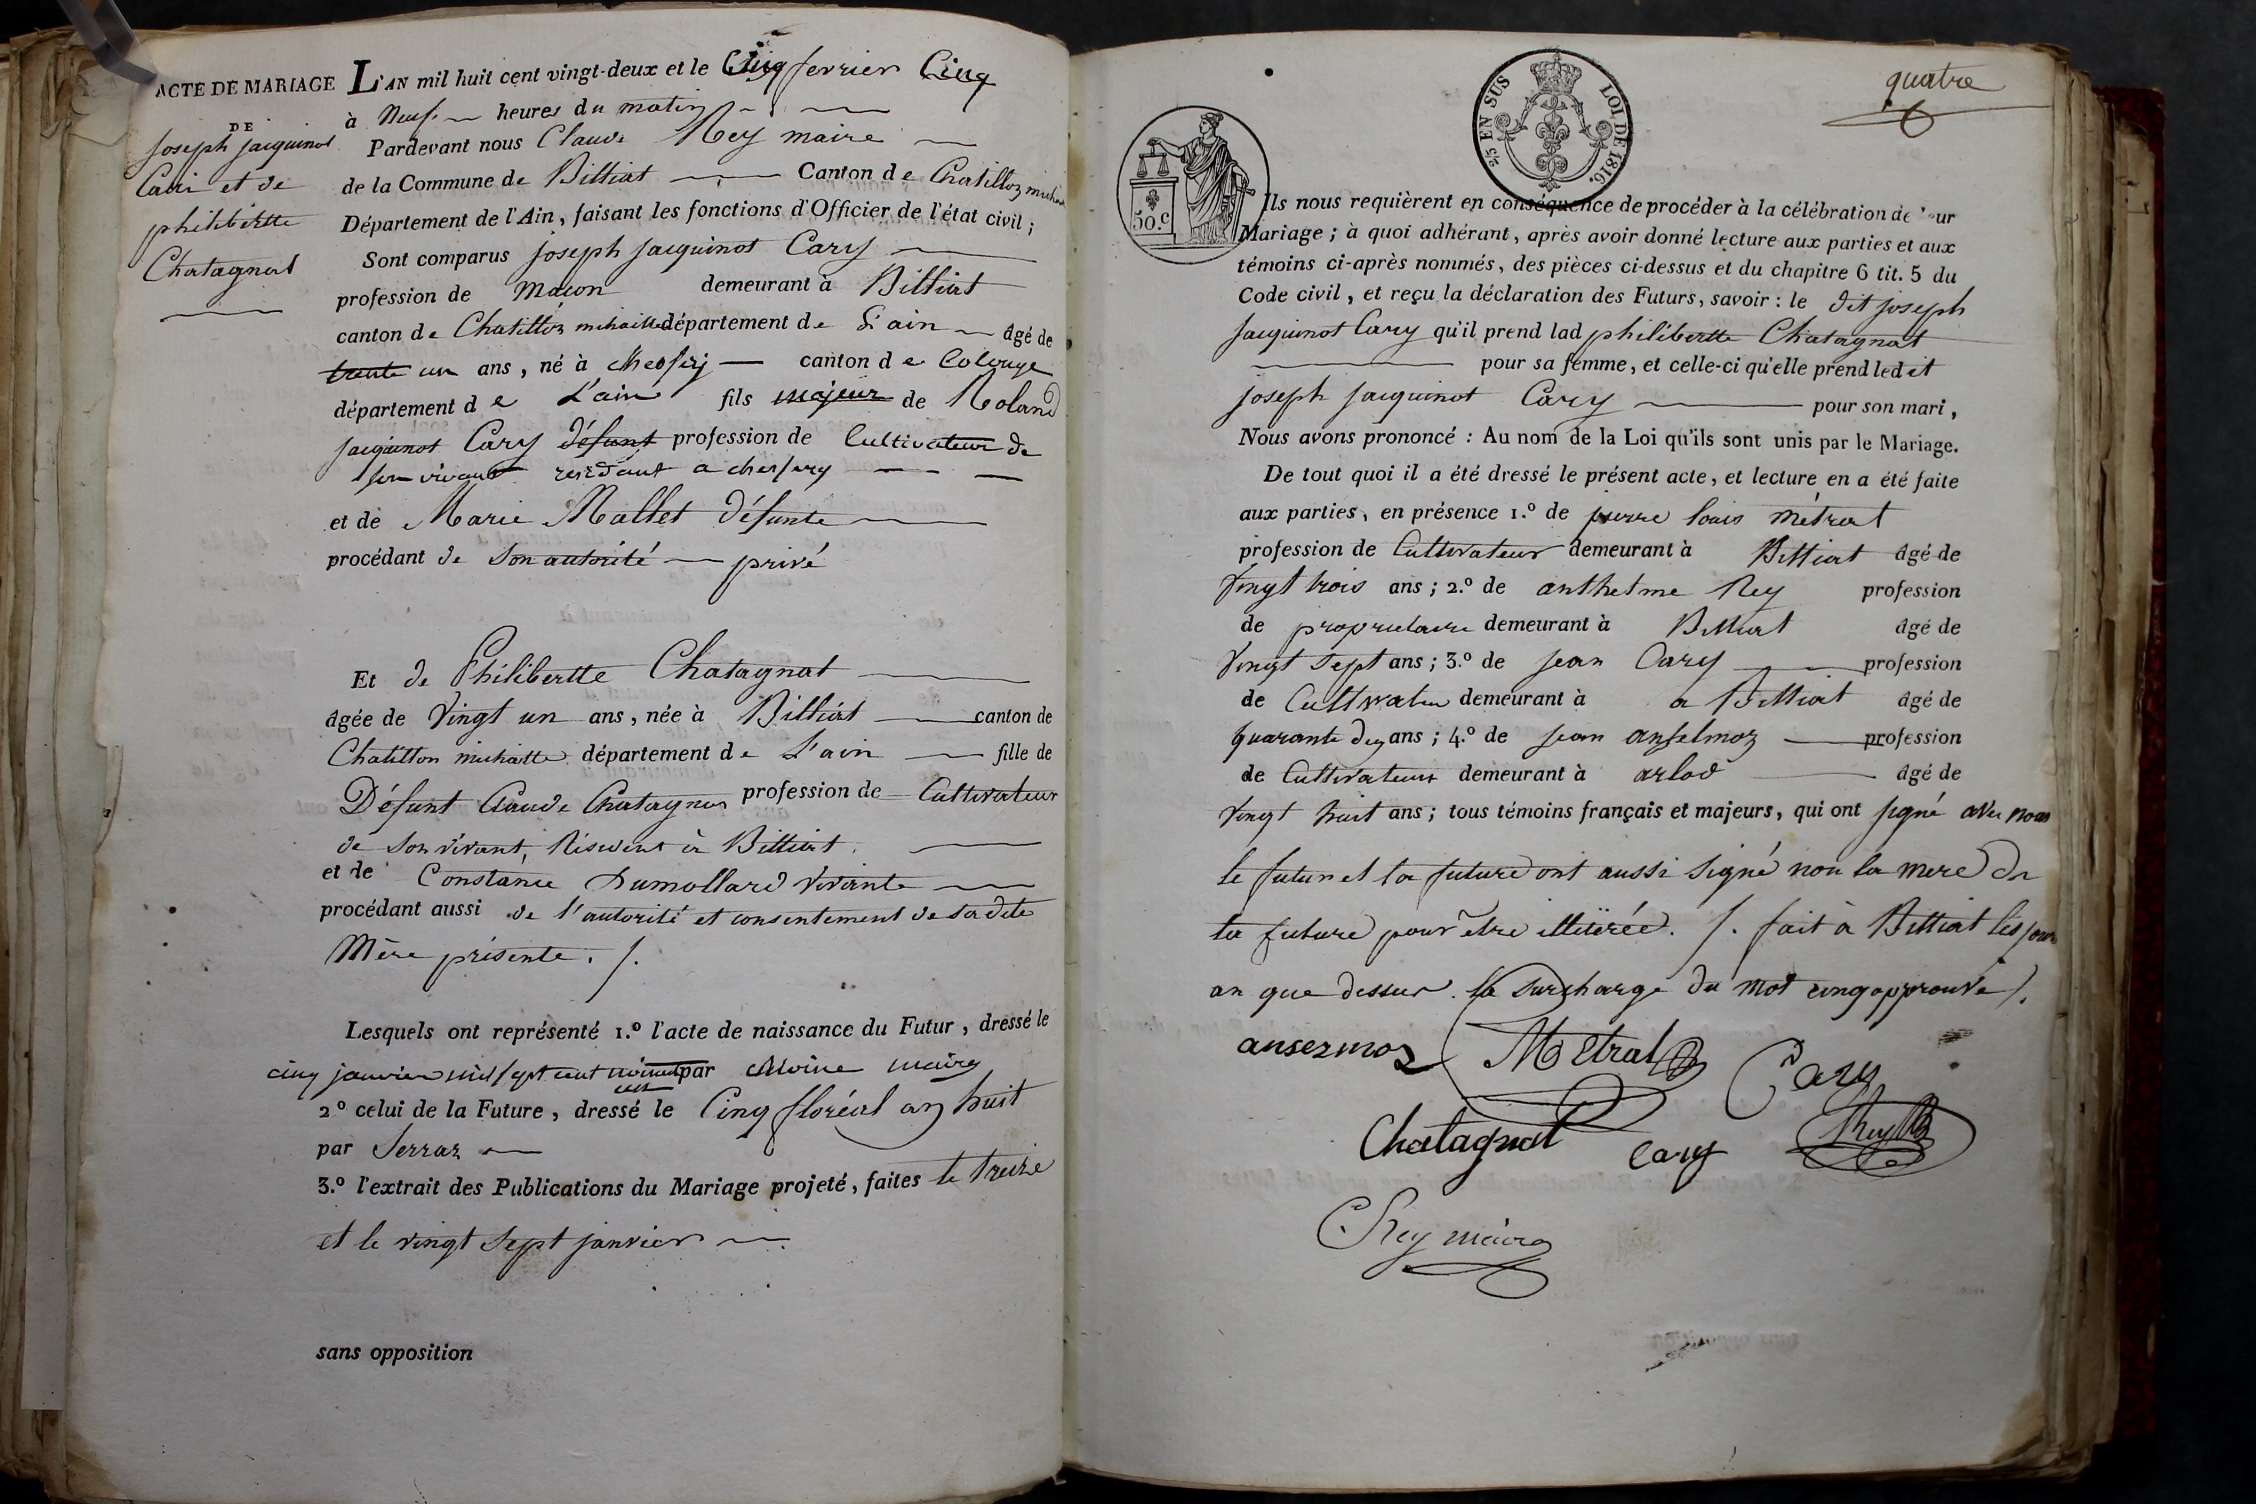 ACTE DE MARIAGE
DE
joseph jacquinot
Cari et de
philibertte
Chatagnat
L'AN mil huit cent vingt-deux et le Cinq fevrier Cinq
à Neuf heures du matin
Pardevant nous Claude Rey maire
de la Commune de Billiat Canton de Chatillon
Département de l'Ain, faisant les fonctions d'Officier de l'état civil;
Sont comparus joseph jacquinot Cary
profession de maçon demeurant à Billiat
canton de Chatillon michaille département de L'ain âgé de
trente un ans, né à canton de Colonge
département de L'ain fils majeur de Roland
jacquinot Cary défunt profession de Cultivateur de
son vivant residant a chesery
et de Marie Mallet défunte
procédant de son autorité privé
Et de Philibertte Chatagnat
âgée de Vingt un ans, née à Billiat canton de
Chatillon michaille département de L'ain fille de
Défunt Claude Chatagnat profession de Cultivateur
de son vivant, Résident à Billiat
et de Constance Dumollard Vivante
procédant aussi de l'autorité et consentement de sadite
Mère présente. /.
Lesquels ont représenté 1.º l'acte de naissance du Futur, dressé le
cinq janvier mil sept cent par maire
2º celui de la Future, dressé le Cinq floréal an huit
par Serraz
3.º l'extrait des Publications du Mariage projeté, faites le treize
et le vingt sept janvier
sans opposition
quatre
2/5 EN SUS LOI DE 1816.
50.c
Ils nous requièrent en conséquence de procéder à la célébration de leur
Mariage; à quoi adhérant, après avoir donné lecture aux parties et aux
témoins ci-après nommés, des pièces ci-dessus et du chapitre 6 tit. 5 du
Code civil, et reçu la déclaration des Futurs, savoir: le dit joseph
jacquinot Cary qu'il prend lad philibertte Chatagnat
pour sa femme, et celle-ci qu'elle prend ledit
joseph jacquinot Cary pour son mari,
Nous avons prononcé: Au nom de la Loi qu'ils sont unis par le Mariage.
De tout quoi il a été dressé le présent acte, et lecture en a été faite
aux parties, en présence 1.º de pierre louis métrat
profession de Cultivateur demeurant à Billiat âgé de
Vingt trois ans; 2.º de anthelme Rey profession
de proprietaire demeurant à Billiat âgé de
Vingt sept ans; 3.º de jean Cary profession
de Cultivateu demeurant à a Billiat âgé de
quarante ans; 4.º de jean anselmoz profession
de Cultivateur demeurant à arlod âgé de
Vingt huit ans; tous témoins français et majeurs, qui ont signé avec nous
le futur et la future ont aussi signé non la mere de
la future pour être illitérée. /. fait à Billiat les jour
an que dessus. la surcharge du mot cinq approuvé /.
ansermoz Métral Cary
Chatagnat Cary Rey
C. Rey maire